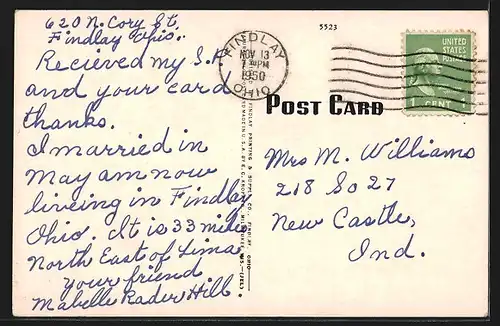 620 N. Cory St.
Findlay Ohio.
Recieved my S.
and your card
thanks.
I married in
May am now
liveing in Findlay
Ohio. It is 33 miles
North East of Lima
your friend
Mabelle Rader Hill
5523
FINDLAY
NOV 13
PM
1950
OHIO
UNITED
STATES
POSTAGE
1 CENT 1
POST CARD
Mrs M. Williams
218 So 27
New Castle,
Ind.
FINDLAY PRINTING & SUPPLY CO., FINDLAY, OHIO